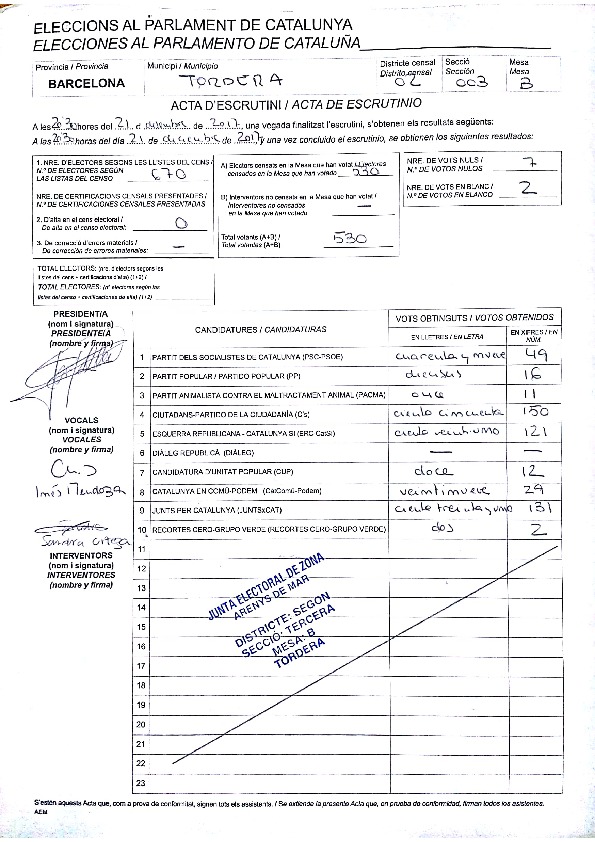 ELECCIONS AL PARLAMENT DE CATALUNYA
ELECCIONES AL PARLAMENTO DE CATALUÑA
Provincia / Provincia
BARCELONA
Municipi / Municipio
TORDERA
Districte censal
Distrito censal
02
Secció
Sección
003
Mesa
Mesa
B
ACTA D'ESCRUTINI / ACTA DE ESCRUTINIO
A les hores del 21 d desembre de 2017, una vegada finalitzat l'escrutini, s'obtenen els resultats següents:
A las horas del día 21 de diciembre de 2017 y una vez concluido el escrutinio, se obtienen los siguientes resultados:
1. NRE. D'ELECTORS SEGONS LES LLISTES DEL CENS /
N.º DE ELECTORES SEGÚN
LAS LISTAS DEL CENSO
670
NRE. DE CERTIFICACIONS CENSALS PRESENTADES /
N.º DE CERTIFICACIONES CENSALES PRESENTADAS
2. D'alta en el cens electoral /
De alta en el censo electoral:
0
3. De correcció d'errors materials /
De corrección de errores materiales:
—
TOTAL ELECTORS: (nre. d'electors segons les
llistes del cens + certificacions d'alta) (1+2) /
TOTAL ELECTORES: (nº electores según las
listas del censo + certificaciones de alta) (1+2)
A) Electors censats en la Mesa que han votat / Electores
censados en la Mesa que han votado
530
B) Interventors no censats en la Mesa que han votat /
Interventores no censados
en la Mesa que han votado
—
Total votants (A+B) /
Total votantes (A+B)
530
NRE. DE VOTS NULS /
N.º DE VOTOS NULOS
7
NRE. DE VOTS EN BLANC /
N.º DE VOTOS EN BLANCO
2
PRESIDENT/A
(nom i signatura)
PRESIDENTE/A
(nombre y firma)
VOCALS
(nom i signatura)
VOCALES
(nombre y firma)
Inés Mendoza
Sandra Ortega
INTERVENTORS
(nom i signatura)
INTERVENTORES
(nombre y firma)
CANDIDATURES / CANDIDATURAS
VOTS OBTINGUTS / VOTOS OBTENIDOS
EN LLETRES / EN LETRA
EN XIFRES / EN NÚM.
1 PARTIT DELS SOCIALISTES DE CATALUNYA (PSC-PSOE) cuarenta y nueve 49
2 PARTIT POPULAR / PARTIDO POPULAR (PP) dieciseis 16
3 PARTIT ANIMALISTA CONTRA EL MALTRACTAMENT ANIMAL (PACMA) once 11
4 CIUTADANS-PARTIDO DE LA CIUDADANÍA (C's) ciento cincuenta 150
5 ESQUERRA REPUBLICANA - CATALUNYA SÍ (ERC-CatSí) ciento veintiuno 121
6 DIÀLEG REPUBLICÀ (DIÀLEG) — —
7 CANDIDATURA D'UNITAT POPULAR (CUP) doce 12
8 CATALUNYA EN COMÚ-PODEM (CatComú-Podem) veintinueve 29
9 JUNTS PER CATALUNYA (JUNTSxCAT) ciento treinta y uno 131
10 RECORTES CERO-GRUPO VERDE (RECORTES CERO-GRUPO VERDE) dos 2
11
12
13
14
15
16
17
18
19
20
21
22
23
JUNTA ELECTORAL DE ZONA
ARENYS DE MAR
DISTRICTE: SEGON
SECCIÓ: TERCERA
MESA: B
TORDERA
S'estén aquesta Acta que, com a prova de conformitat, signen tots els assistents. / Se extiende la presente Acta que, en prueba de conformidad, firman todos los asistentes.
AEM